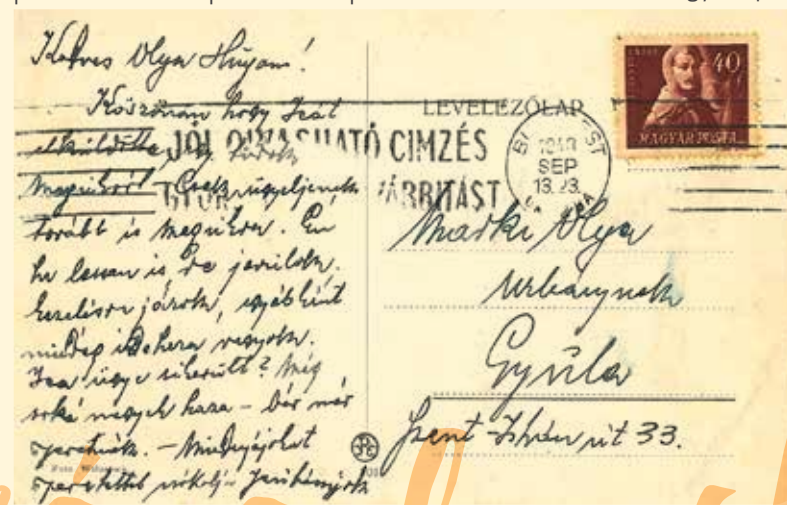 Kedves Olya Húgom!
Köszönöm hogy Icát
elküldötte, így tudok
magukról. Csak ügyeljenek
tovább is magukra. Én
ha lassan is de javulok.
kezelésre járok, egyébként
mindég idehaza vagyok.
Ica ügye sikerült? Még
soká megyek haza - bár már
szeretnék. - Mindnyájukat
szeretettel csókolja
LEVELEZŐLAP
JÓL OLVASHATÓ CIMZÉS
GYOR ÁRBITÁST
SEP
13.23.
40
MAGYAR POSTA
Márki Olya
Urbánynek
Gyula
Szent-István út 33.